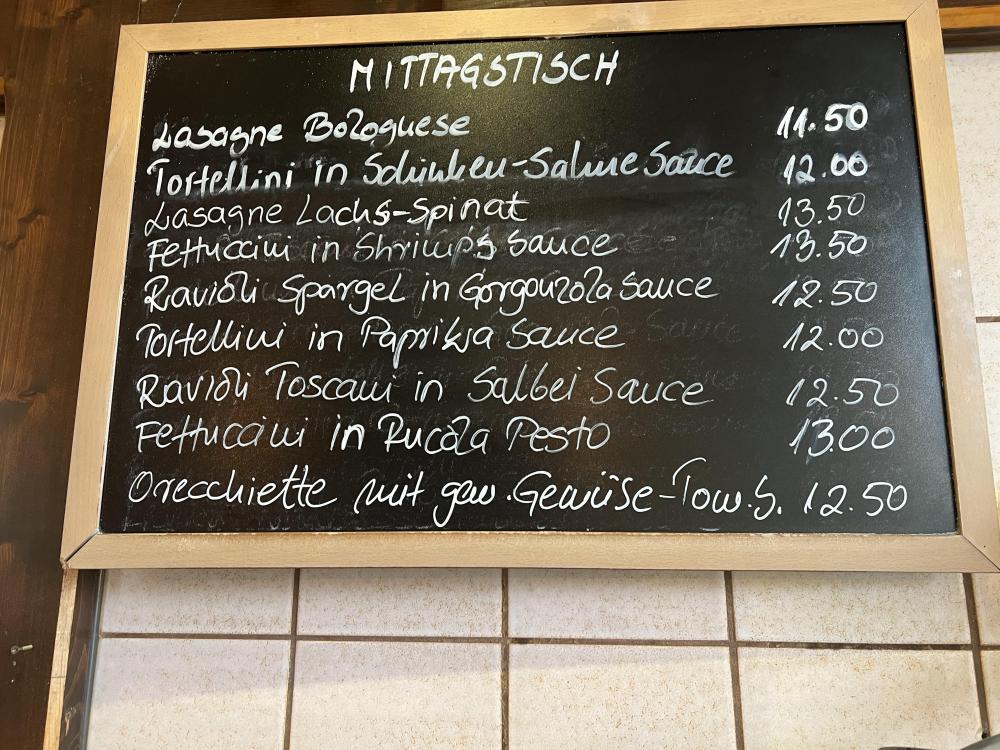 MITTAGSTISCH
Lasagne Bolognese 11.50
Tortellini in Schinken-Sahne Sauce 12.00
Lasagne Lachs-Spinat 13.50
Fettuccini in Shrimps Sauce 13.50
Ravioli Spargel in Gorgonzola Sauce 12.50
Tortellini in Paprika Sauce 12.00
Ravioli Toscani in Salbei Sauce 12.50
Fettuccini in Rucola Pesto 13.00
Orecchiette mit gem. Gemüse-Tom.S. 12.50